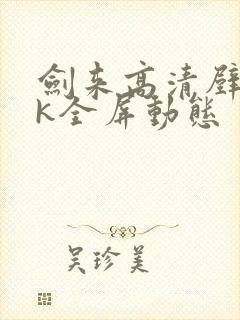 劍来高清壁
K全屏動態
吴珍美